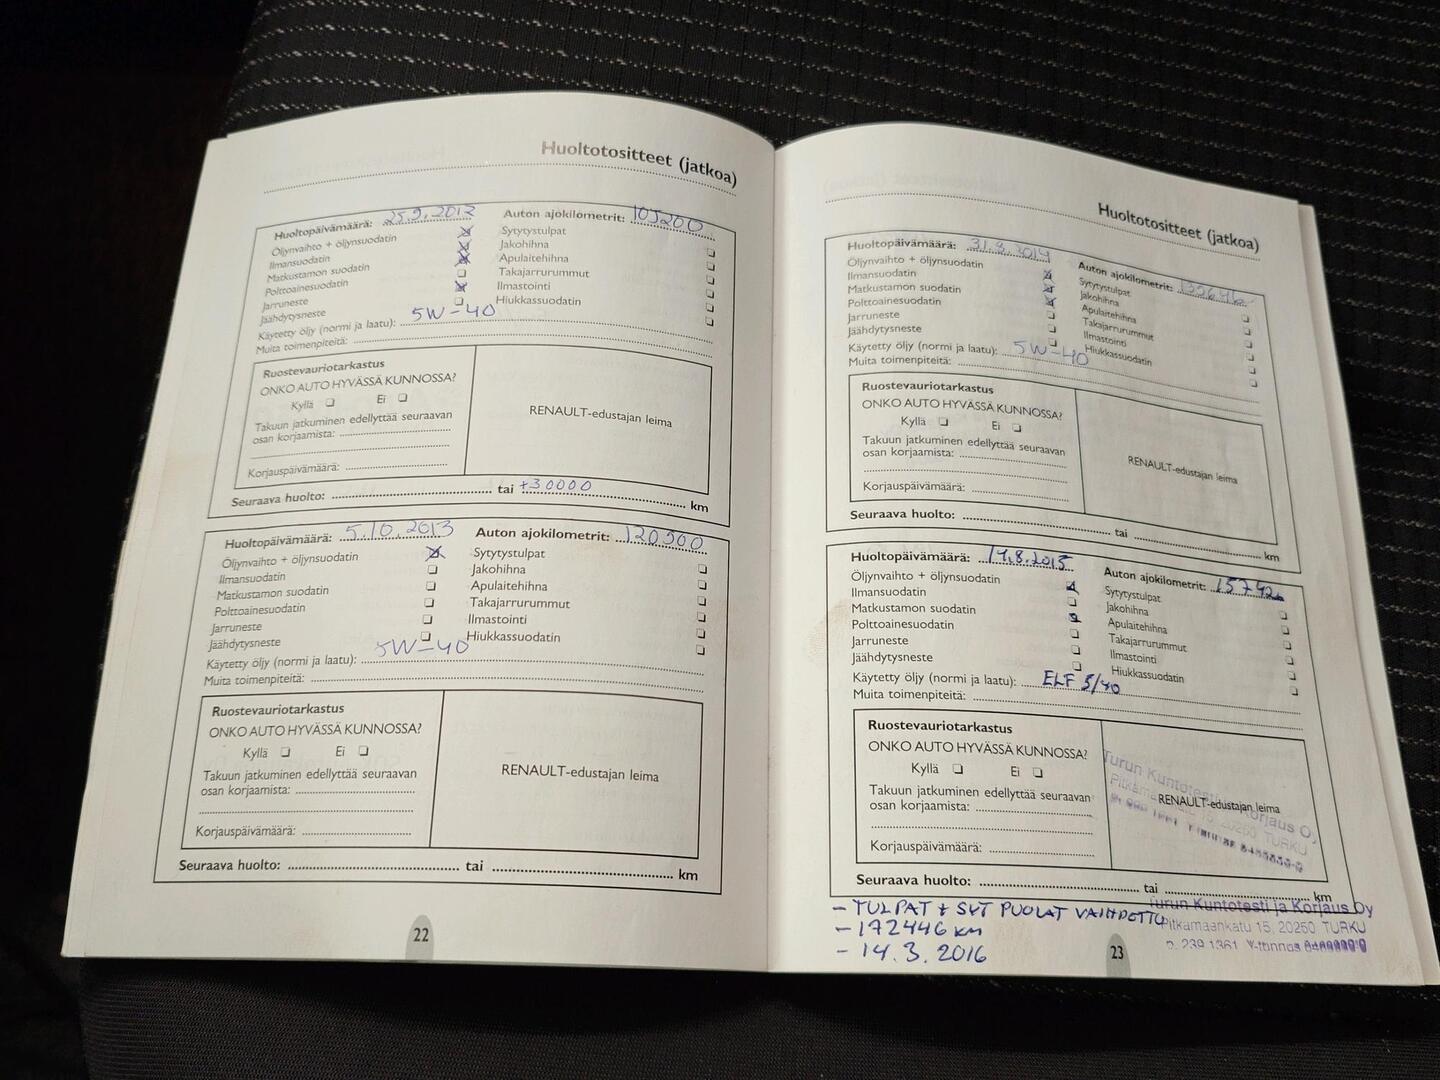 Huoltotositteet (jatkoa)
Huoltopäivämäärä: 25.9.2012 Auton ajokilometrit: 105200
Öljynvaihto + öljynsuodatin Sytytystulpat
Ilmansuodatin Jakohihna
Matkustamon suodatin Apulaitehihna
Polttoainesuodatin Takajarrurummut
Jarruneste Ilmastointi
Jäähdytysneste Hiukkassuodatin
Käytetty öljy (normi ja laatu): 5W-40
Muita toimenpiteitä:
Ruostevauriotarkastus
ONKO AUTO HYVÄSSÄ KUNNOSSA?
Kyllä Ei
Takuun jatkuminen edellyttää seuraavan
osan korjaamista:
Korjauspäivämäärä:
RENAULT-edustajan leima
Seuraava huolto: tai +30000 km
Huoltopäivämäärä: 5.10.2013 Auton ajokilometrit: 120500
Öljynvaihto + öljynsuodatin Sytytystulpat
Ilmansuodatin Jakohihna
Matkustamon suodatin Apulaitehihna
Polttoainesuodatin Takajarrurummut
Jarruneste Ilmastointi
Jäähdytysneste Hiukkassuodatin
Käytetty öljy (normi ja laatu): 5W-40
Muita toimenpiteitä:
Ruostevauriotarkastus
ONKO AUTO HYVÄSSÄ KUNNOSSA?
Kyllä Ei
Takuun jatkuminen edellyttää seuraavan
osan korjaamista:
Korjauspäivämäärä:
RENAULT-edustajan leima
Seuraava huolto: tai km
22
Huoltotositteet (jatkoa)
Huoltopäivämäärä: 31.3.2014 Auton ajokilometrit:
Öljynvaihto + öljynsuodatin Sytytystulpat
Ilmansuodatin Jakohihna
Matkustamon suodatin Apulaitehihna
Polttoainesuodatin Takajarrurummut
Jarruneste Ilmastointi
Jäähdytysneste Hiukkassuodatin
Käytetty öljy (normi ja laatu): 5W-40
Muita toimenpiteitä:
Ruostevauriotarkastus
ONKO AUTO HYVÄSSÄ KUNNOSSA?
Kyllä Ei
Takuun jatkuminen edellyttää seuraavan
osan korjaamista:
Korjauspäivämäärä:
RENAULT-edustajan leima
Seuraava huolto: tai km
Huoltopäivämäärä: 14.8.2015 Auton ajokilometrit:
Öljynvaihto + öljynsuodatin Sytytystulpat
Ilmansuodatin Jakohihna
Matkustamon suodatin Apulaitehihna
Polttoainesuodatin Takajarrurummut
Jarruneste Ilmastointi
Jäähdytysneste Hiukkassuodatin
Käytetty öljy (normi ja laatu): ELF 5/40
Muita toimenpiteitä:
Ruostevauriotarkastus
ONKO AUTO HYVÄSSÄ KUNNOSSA?
Kyllä Ei
Takuun jatkuminen edellyttää seuraavan
osan korjaamista:
Korjauspäivämäärä:
Turun Kuntotesti ja Korjaus Oy
RENAULT-edustajan leima
15, 20250 TURKU
Seuraava huolto: tai km
- TULPAT + SYT PUOLAT VAIHDETTU
- 172446 KM
- 14.3.2016
Turun Kuntotesti ja Korjaus Oy
Pitkämäenkatu 15, 20250 TURKU
p. 239 1361, Y-tunnus
23